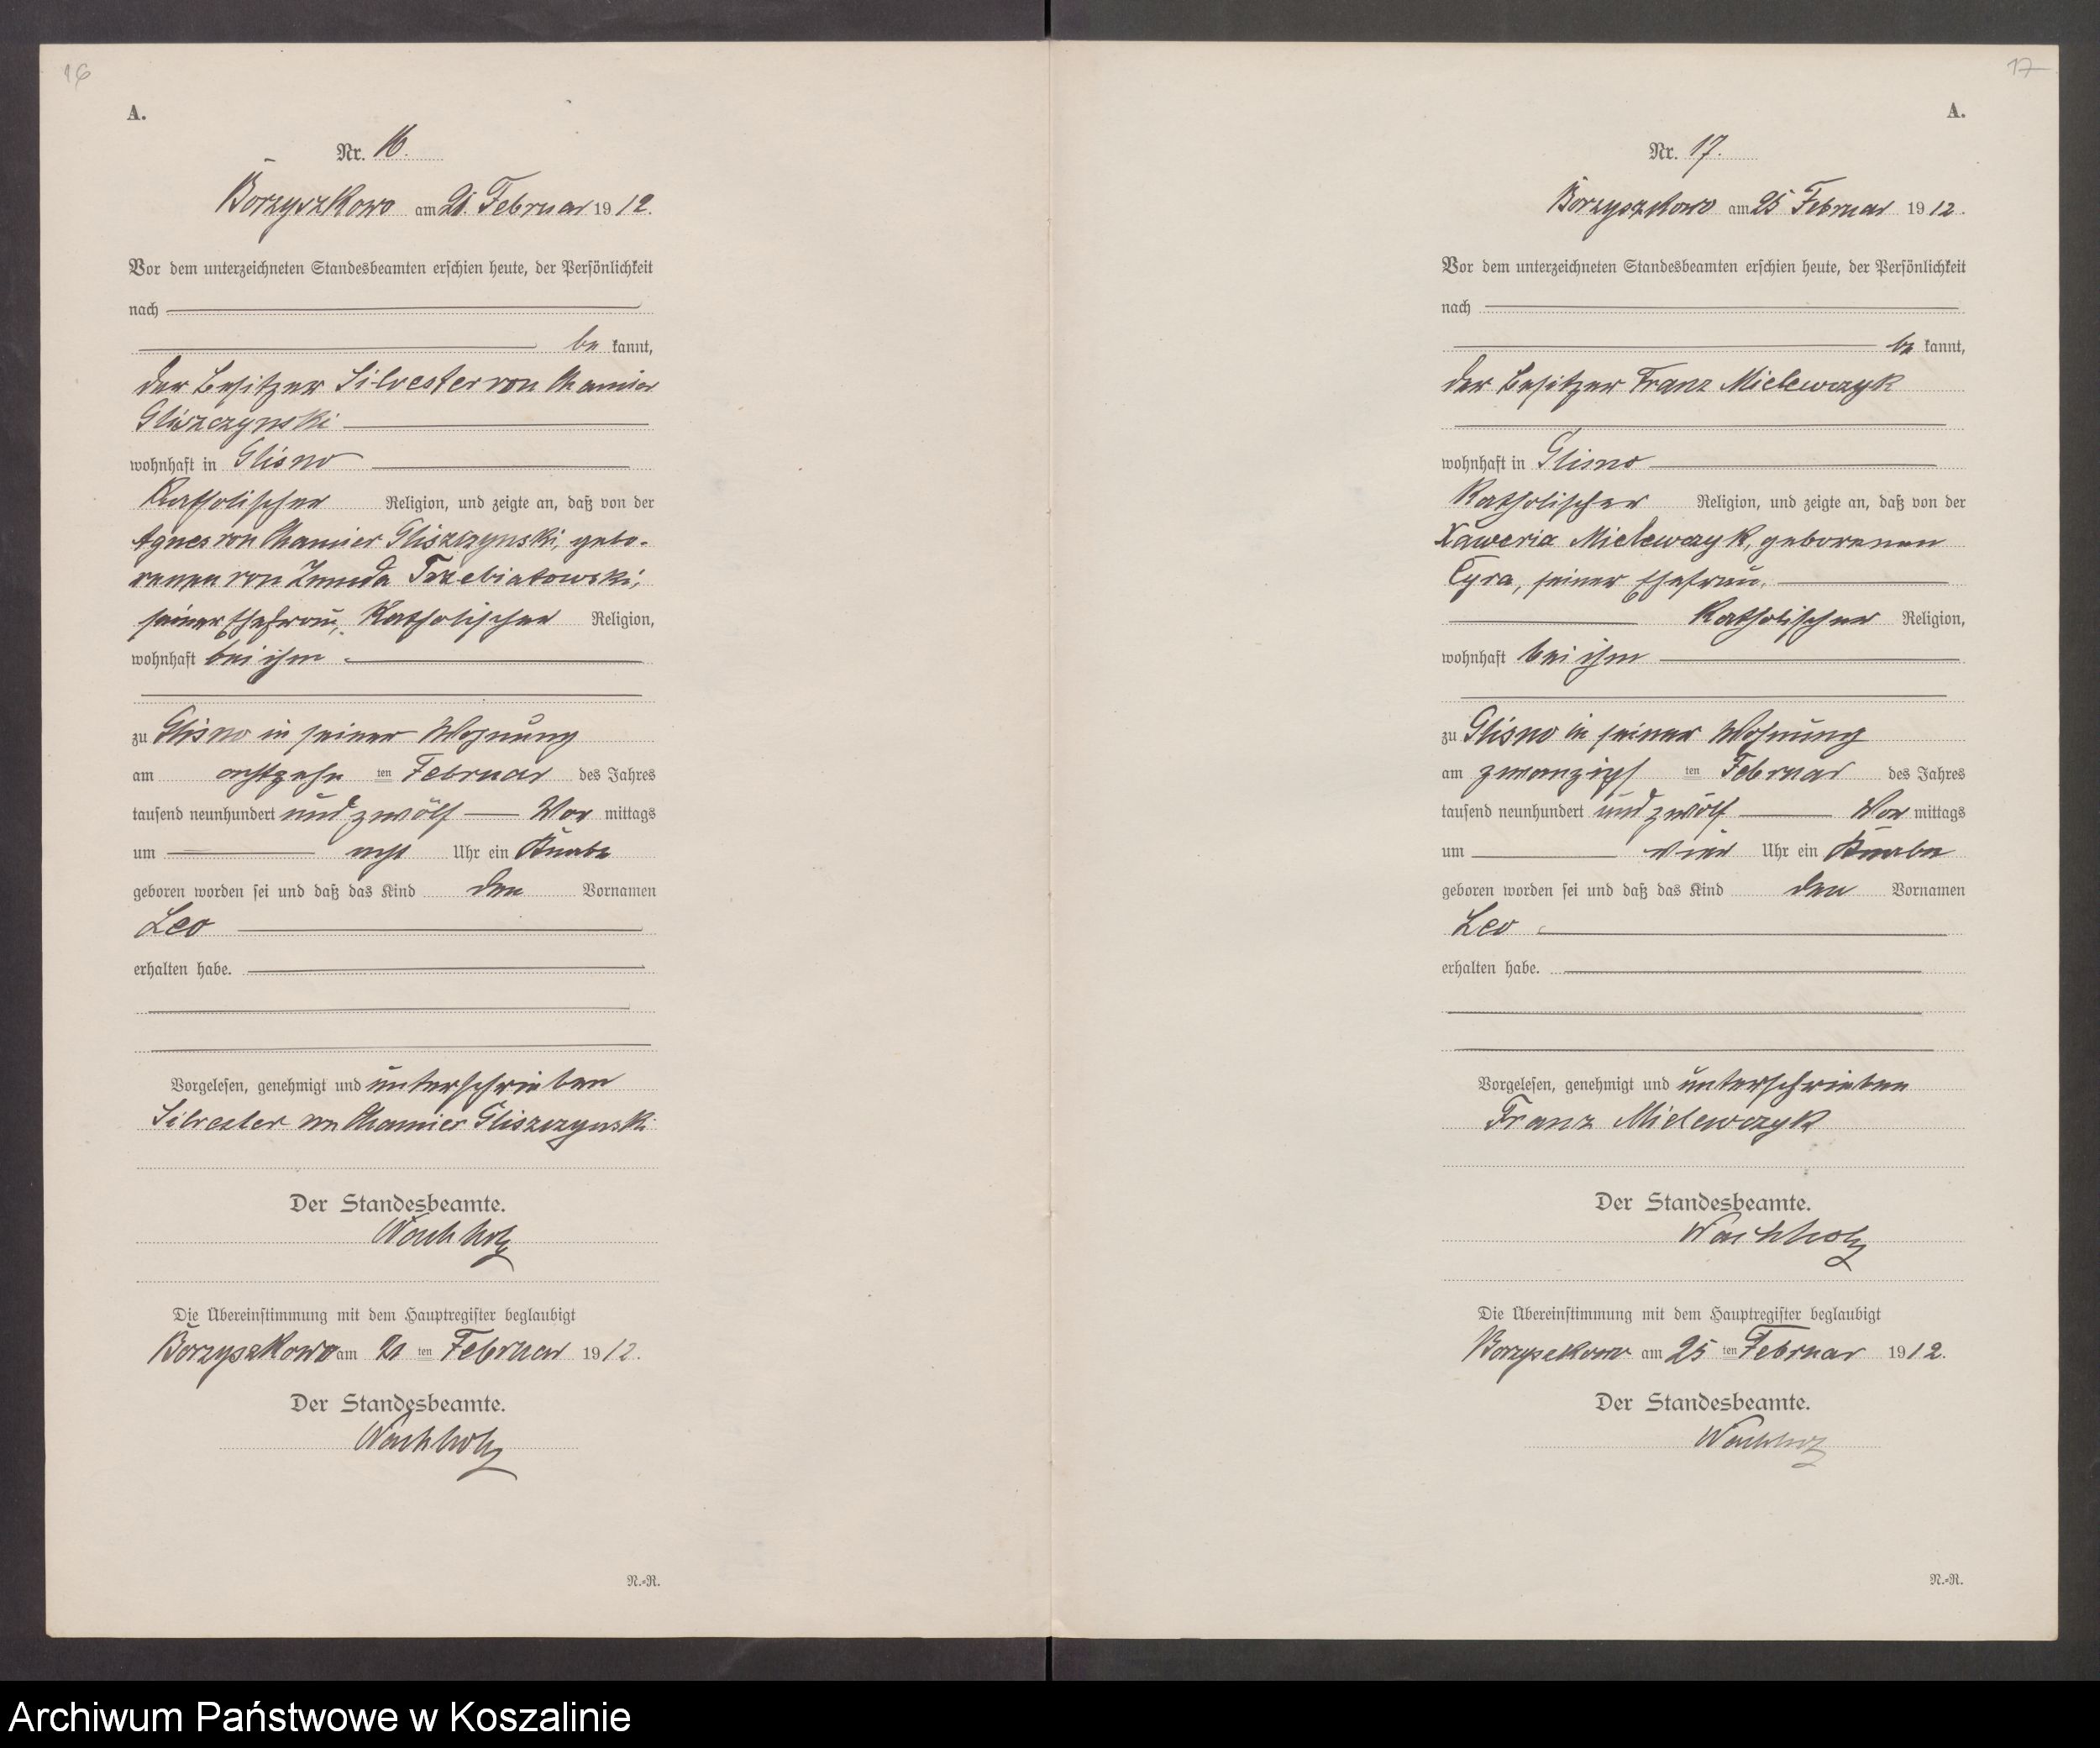 16
A.
Nr. 16.
Borzyszkowo am 21. Februar 1912.
Vor dem unterzeichneten Standesbeamten erschien heute, der Persönlichkeit
nach
be kannt,
der Besitzer Silvester von Chamier
Gliszczynski
wohnhaft in Glisno
Katholischer Religion, und zeigte an, daß von der
Agnes von Chamier Gliszczynski, gebo-
renen von Zmuda Trzebiatowski,
seiner Ehefrau, Katholischer Religion,
wohnhaft bei ihm
zu Glisno in seiner Wohnung
am achtzehn ten Februar des Jahres
tausend neunhundert und zwölf Vor mittags
um acht Uhr ein Knabe
geboren worden sei und daß das Kind den Vornamen
Leo
erhalten habe.
Vorgelesen, genehmigt und unterschrieben
Silvester von Chamier Gliszczynski
Der Standesbeamte.
Wachholz
Die Übereinstimmung mit dem Hauptregister beglaubigt
Borzyszkowo am 21 ten Februar 1912.
Der Standesbeamte.
Wachholz
N.-R.
17
A.
Nr. 17.
Borzyszkowo am 25 Februar 1912.
Vor dem unterzeichneten Standesbeamten erschien heute, der Persönlichkeit
nach
be kannt,
der Besitzer Franz Mielewczyk
wohnhaft in Glisno
Katholischer Religion, und zeigte an, daß von der
Xaweria Mielewczyk, geborenen
Cyra, seiner Ehefrau,
Katholischer Religion,
wohnhaft bei ihm
zu Glisno in seiner Wohnung
am zwanzigs ten Februar des Jahres
tausend neunhundert und zwölf Vor mittags
um vier Uhr ein Knabe
geboren worden sei und daß das Kind den Vornamen
Leo
erhalten habe.
Vorgelesen, genehmigt und unterschrieben
Franz Mielewczyk
Der Standesbeamte.
Wachholz
Die Übereinstimmung mit dem Hauptregister beglaubigt
Borzyszkowo am 25 ten Februar 1912.
Der Standesbeamte.
Wachholz
N.-R.
Archiwum Państwowe w Koszalinie